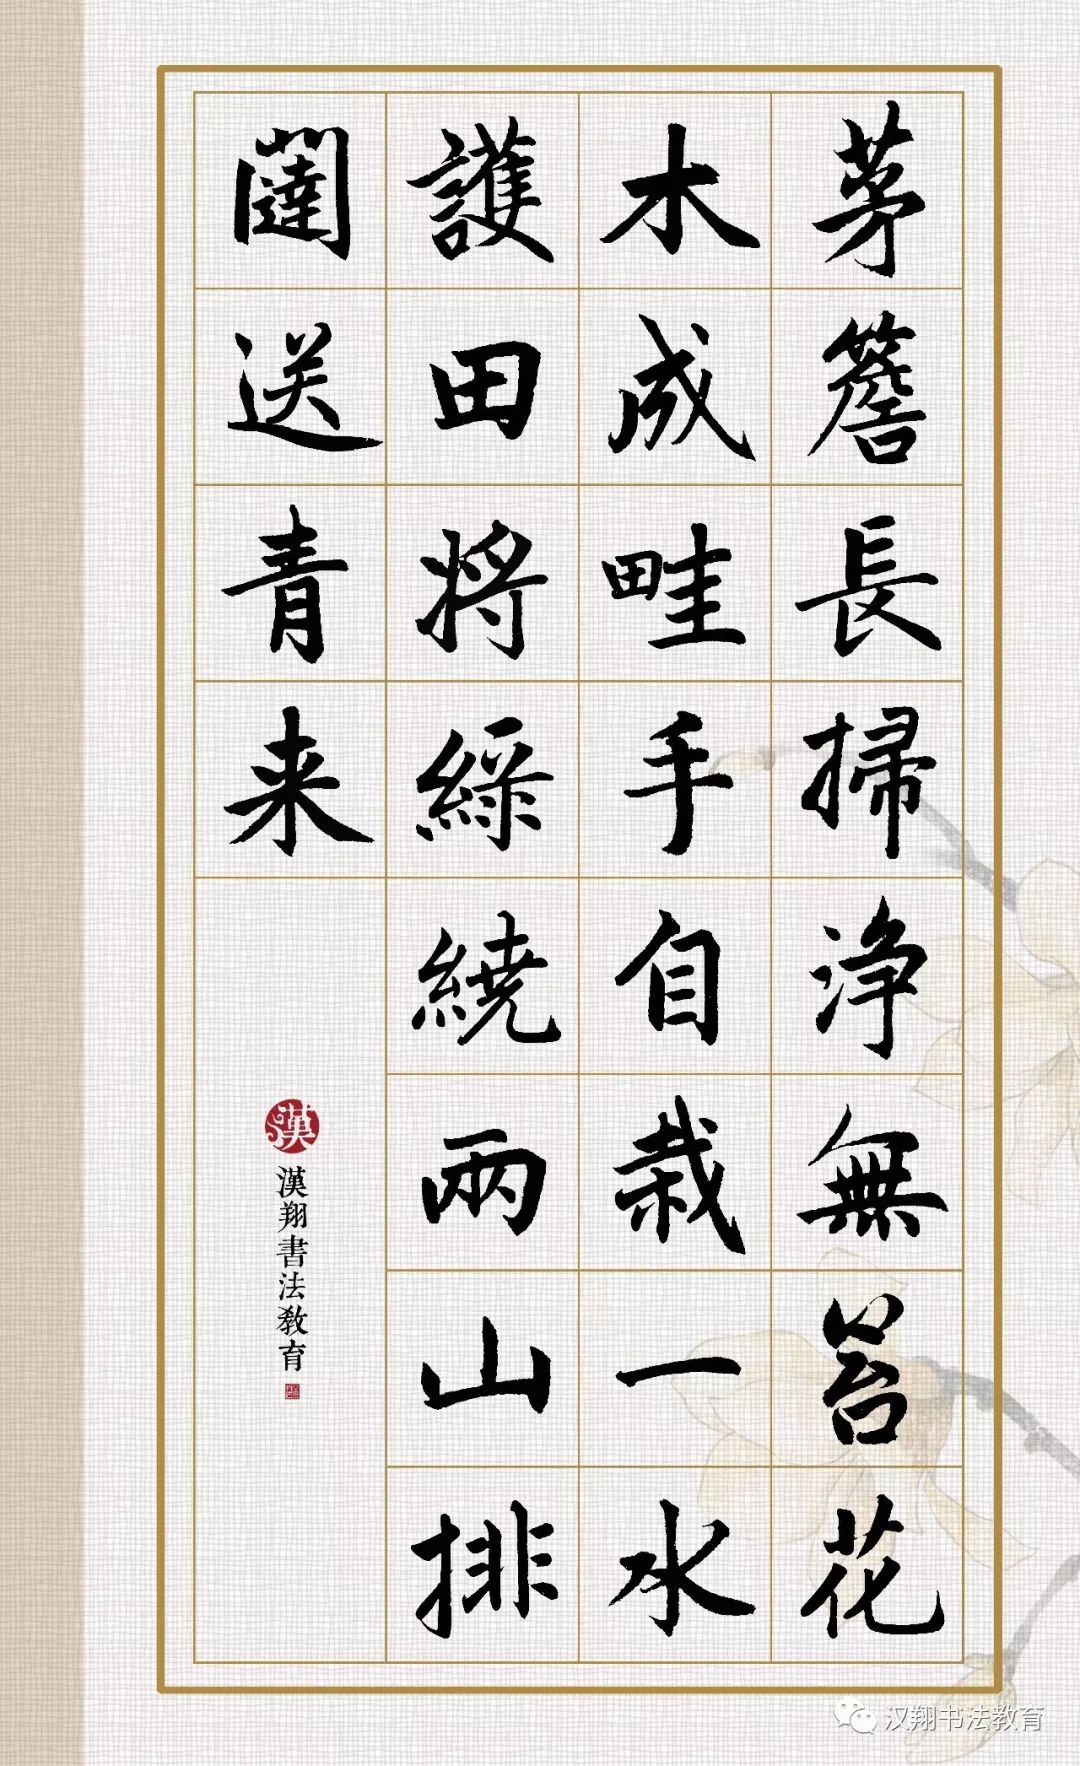 茅簷長掃淨無苔花
木成畦手自栽一水
護田將綠繞兩山排
闥送青来
漢
漢翔書法教育
汉翔书法教育